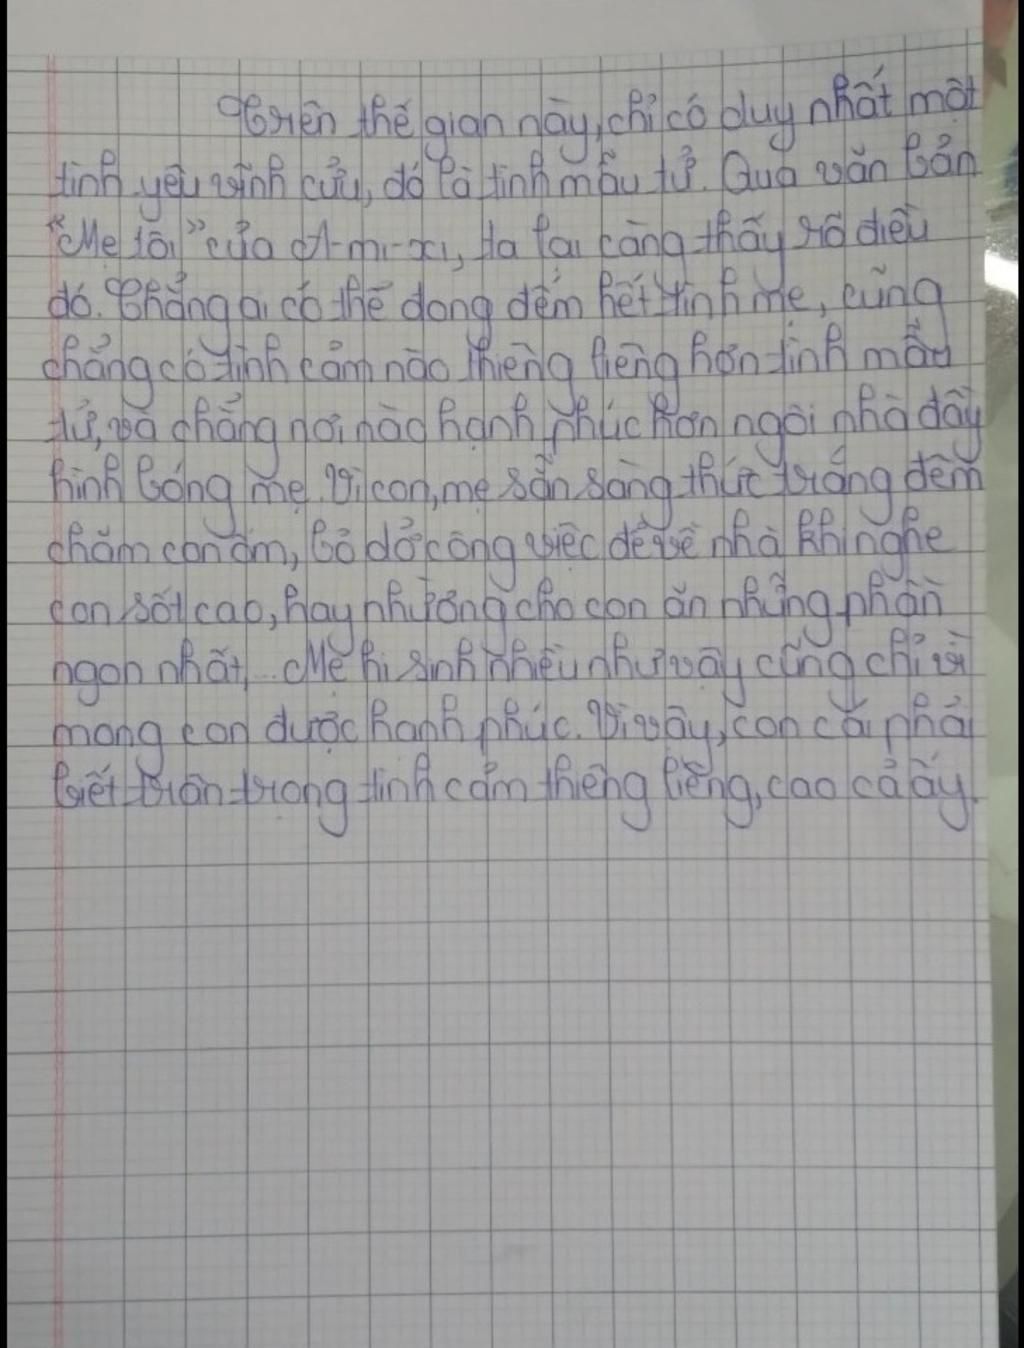 Trên thế gian này, chỉ có duy nhất một
tình yêu vĩnh cửu, đó là tình mẫu tử. Qua văn bản
"Mẹ tôi" của A-mi-xi, ta lại càng thấy rõ điều
đó. Chẳng ai có thể đong đếm hết tình mẹ, cũng
chẳng có tình cảm nào thiêng liêng hơn tình mẫu
tử, và chẳng nơi nào hạnh phúc hơn ngôi nhà đầy
hình bóng mẹ. Vì con, mẹ sẵn sàng thức trắng đêm
chăm con ốm, bỏ dở công việc để về nhà khi nghe
con sốt cao, hay nhường cho con ăn những phần
ngon nhất,... Mẹ hi sinh nhiều như vậy cũng chỉ vì
mong con được hạnh phúc. Vì vậy, con cái phải
biết trân trọng tình cảm thiêng liêng, cao cả ấy.